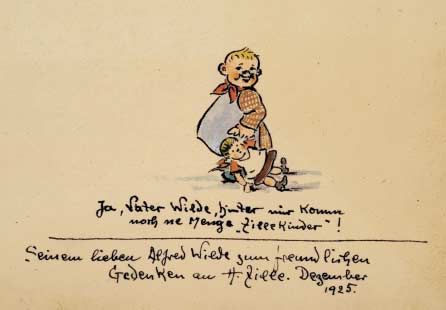 Ja, Vater Wilde, hinter mir komm
noch ne Menge "Zillekinder"!
Seinem lieben Alfred Wilde zum freundlichen
Gedenken an H. Zille. Dezember
1925.